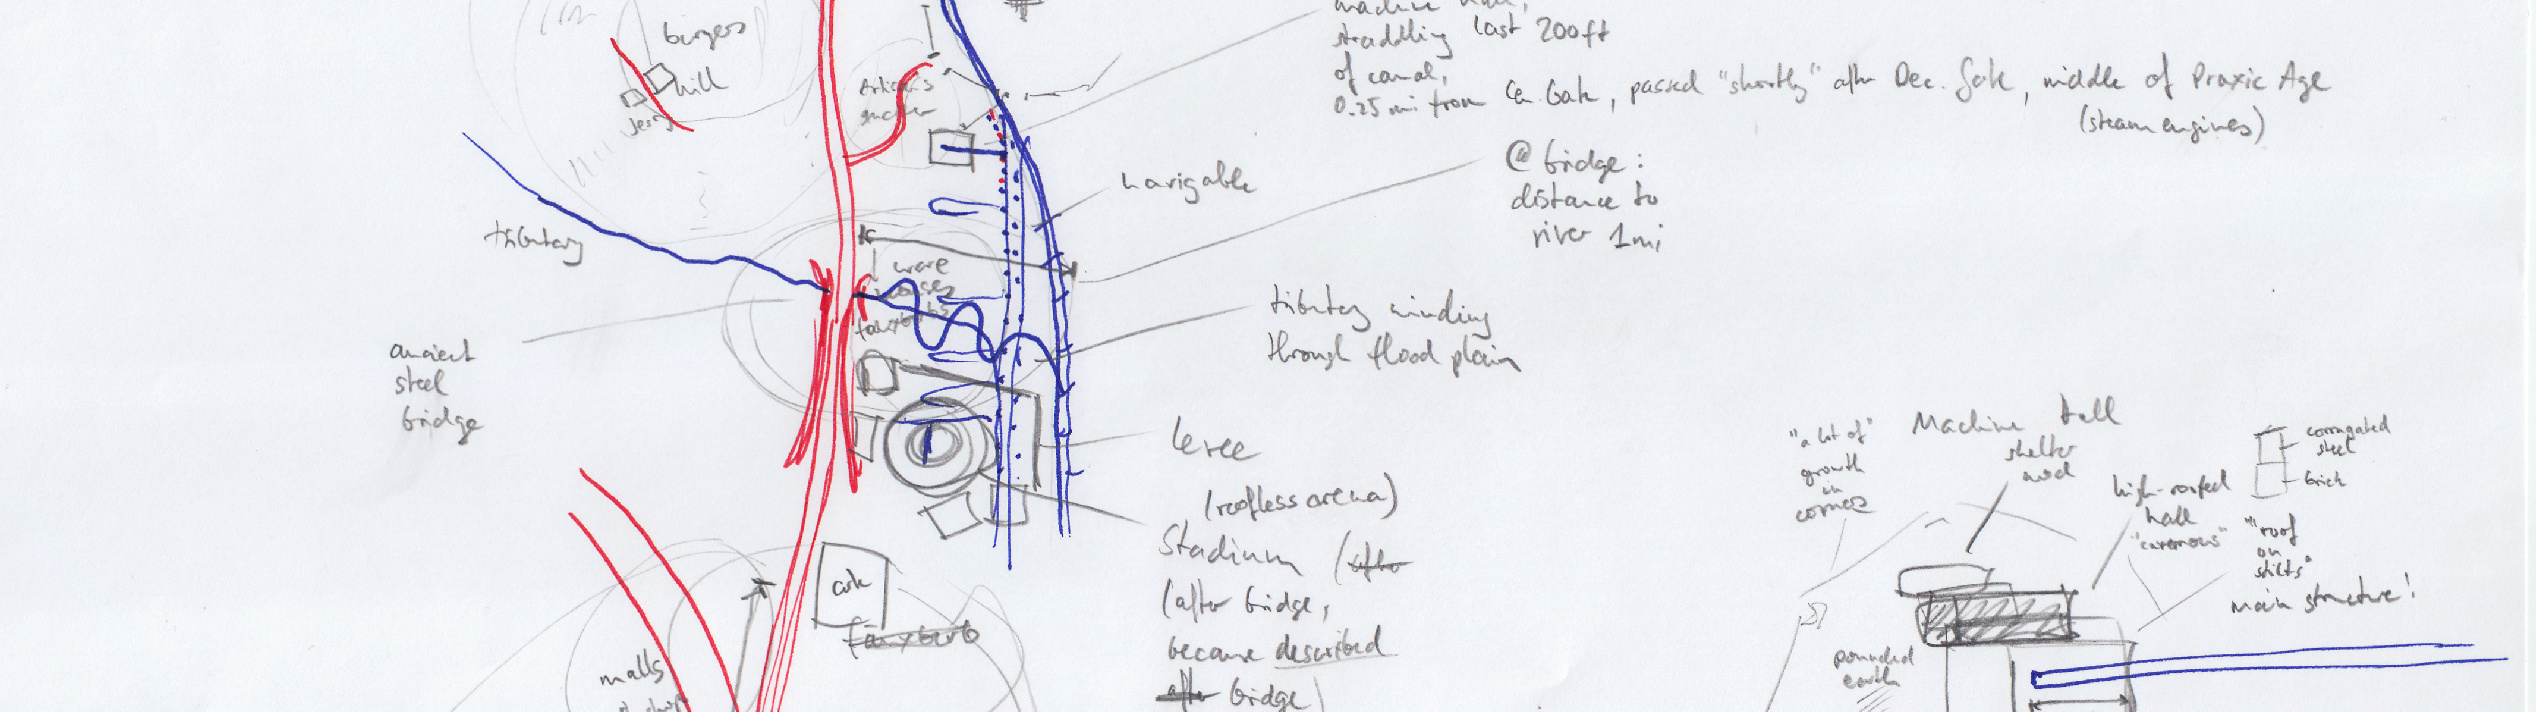 burgers
hill
Jesry
machine hall,
straddling last 200ft
of canal,
0.25 mi from Cen. Gate, passed "shortly" after Dec. Gate, middle of Praxic Age
(steam engines)
Artisan's
quarter
@ bridge:
distance to
river 1mi
navigable
tributary
ware
houses
fauxburbs
tributary winding
through flood plain
ancient
steel
bridge
levee
(roofless arena)
Stadium (after
(after bridge,
because described
after bridge)
ark
fauxburb
malls
Machine Hall
shelter
"a lot of"
growth
in
corners
corrugated
steel
brick
high-roofed
hall
"cavernous"
"roof
on
stilts"
main structure!
pounded
earth